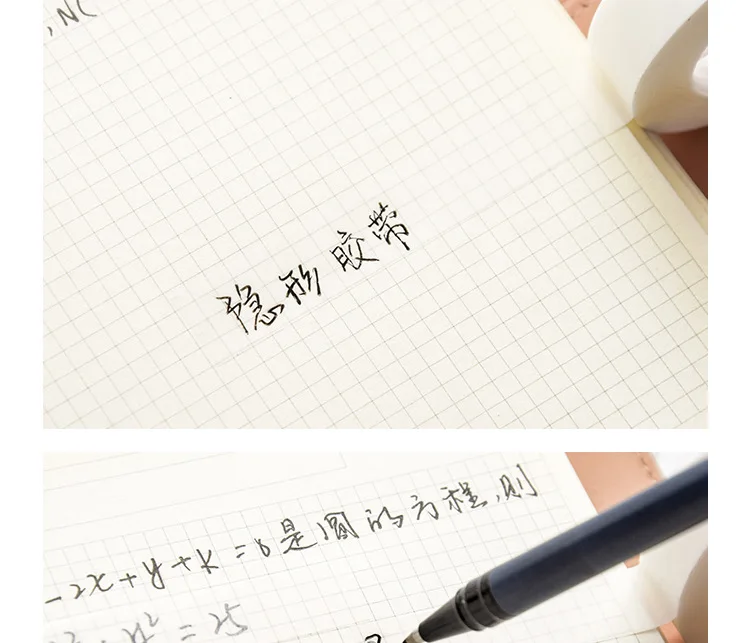 , NC
隐形胶带
-2x+y+k=0是圆的方程,则
x²=25